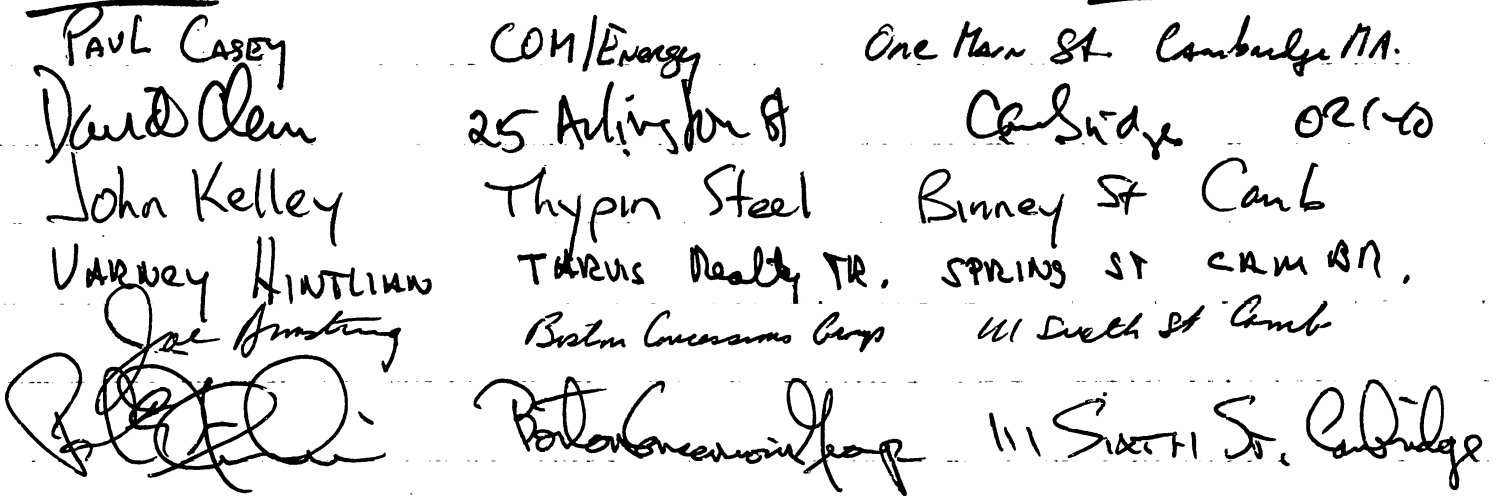 PAUL CASEY COM/Energy One Main St. Cambridge MA.
David Clem 25 Arlington St Cambridge 02140
John Kelley Thypin Steel Binney St Camb
VARNEY HINTLIAN THARVIS Realty TR. SPRING ST CAMBR.
Joe Armstrong Boston Concessions Group 111 Sixth St Camb
Boston Concessions Group 111 SIXTH ST. Cambridge